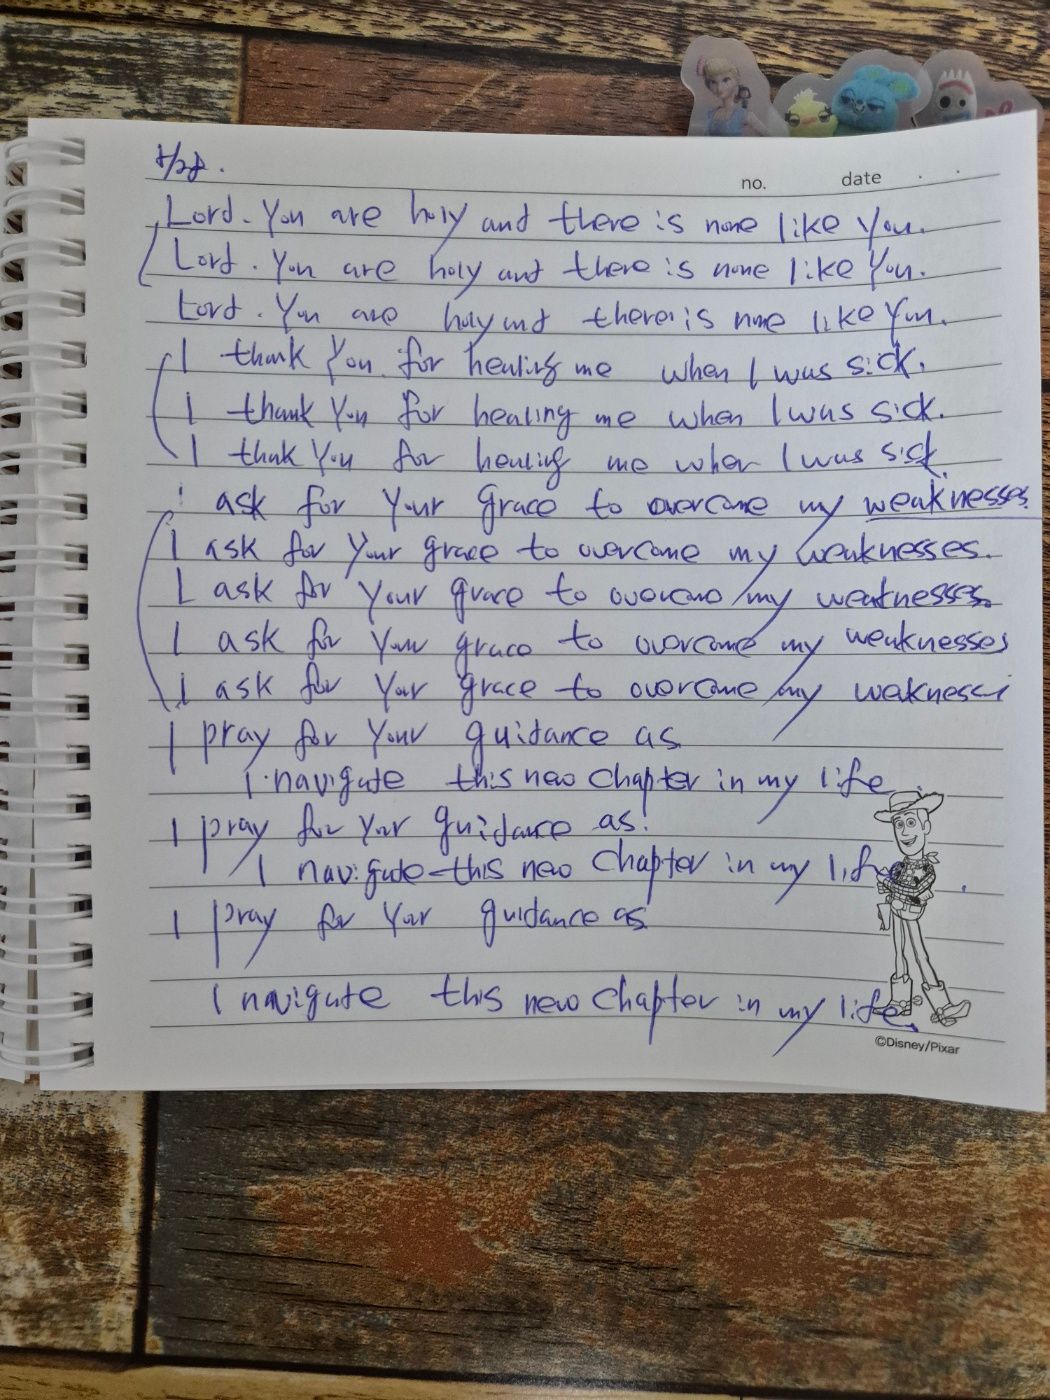 no. date
Lord. You are holy and there is none like You.
Lord. You are holy and there is none like You.
Lord. You are holy and there is none like You.
I thank You for healing me when I was sick.
I thank You for healing me when I was sick.
I thank You for healing me when I was sick.
I ask for Your grace to overcome my weaknesses.
I ask for Your grace to overcome my weaknesses.
I ask for Your grace to overcome my weaknesses.
I ask for Your grace to overcome my weaknesses
I ask for Your grace to overcome my weakness
I pray for Your guidance as
I navigate this new chapter in my life.
I pray for Your guidance as.
I navigate this new chapter in my life.
I pray for Your guidance as
I navigate this new chapter in my life.
©Disney/Pixar